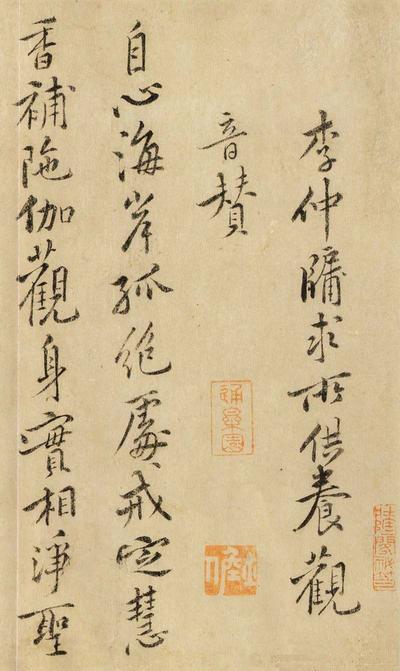 李仲牖求所供養觀
音賛
自心海岸孤絶處戒定慧
香補陁伽觀身實相淨聖